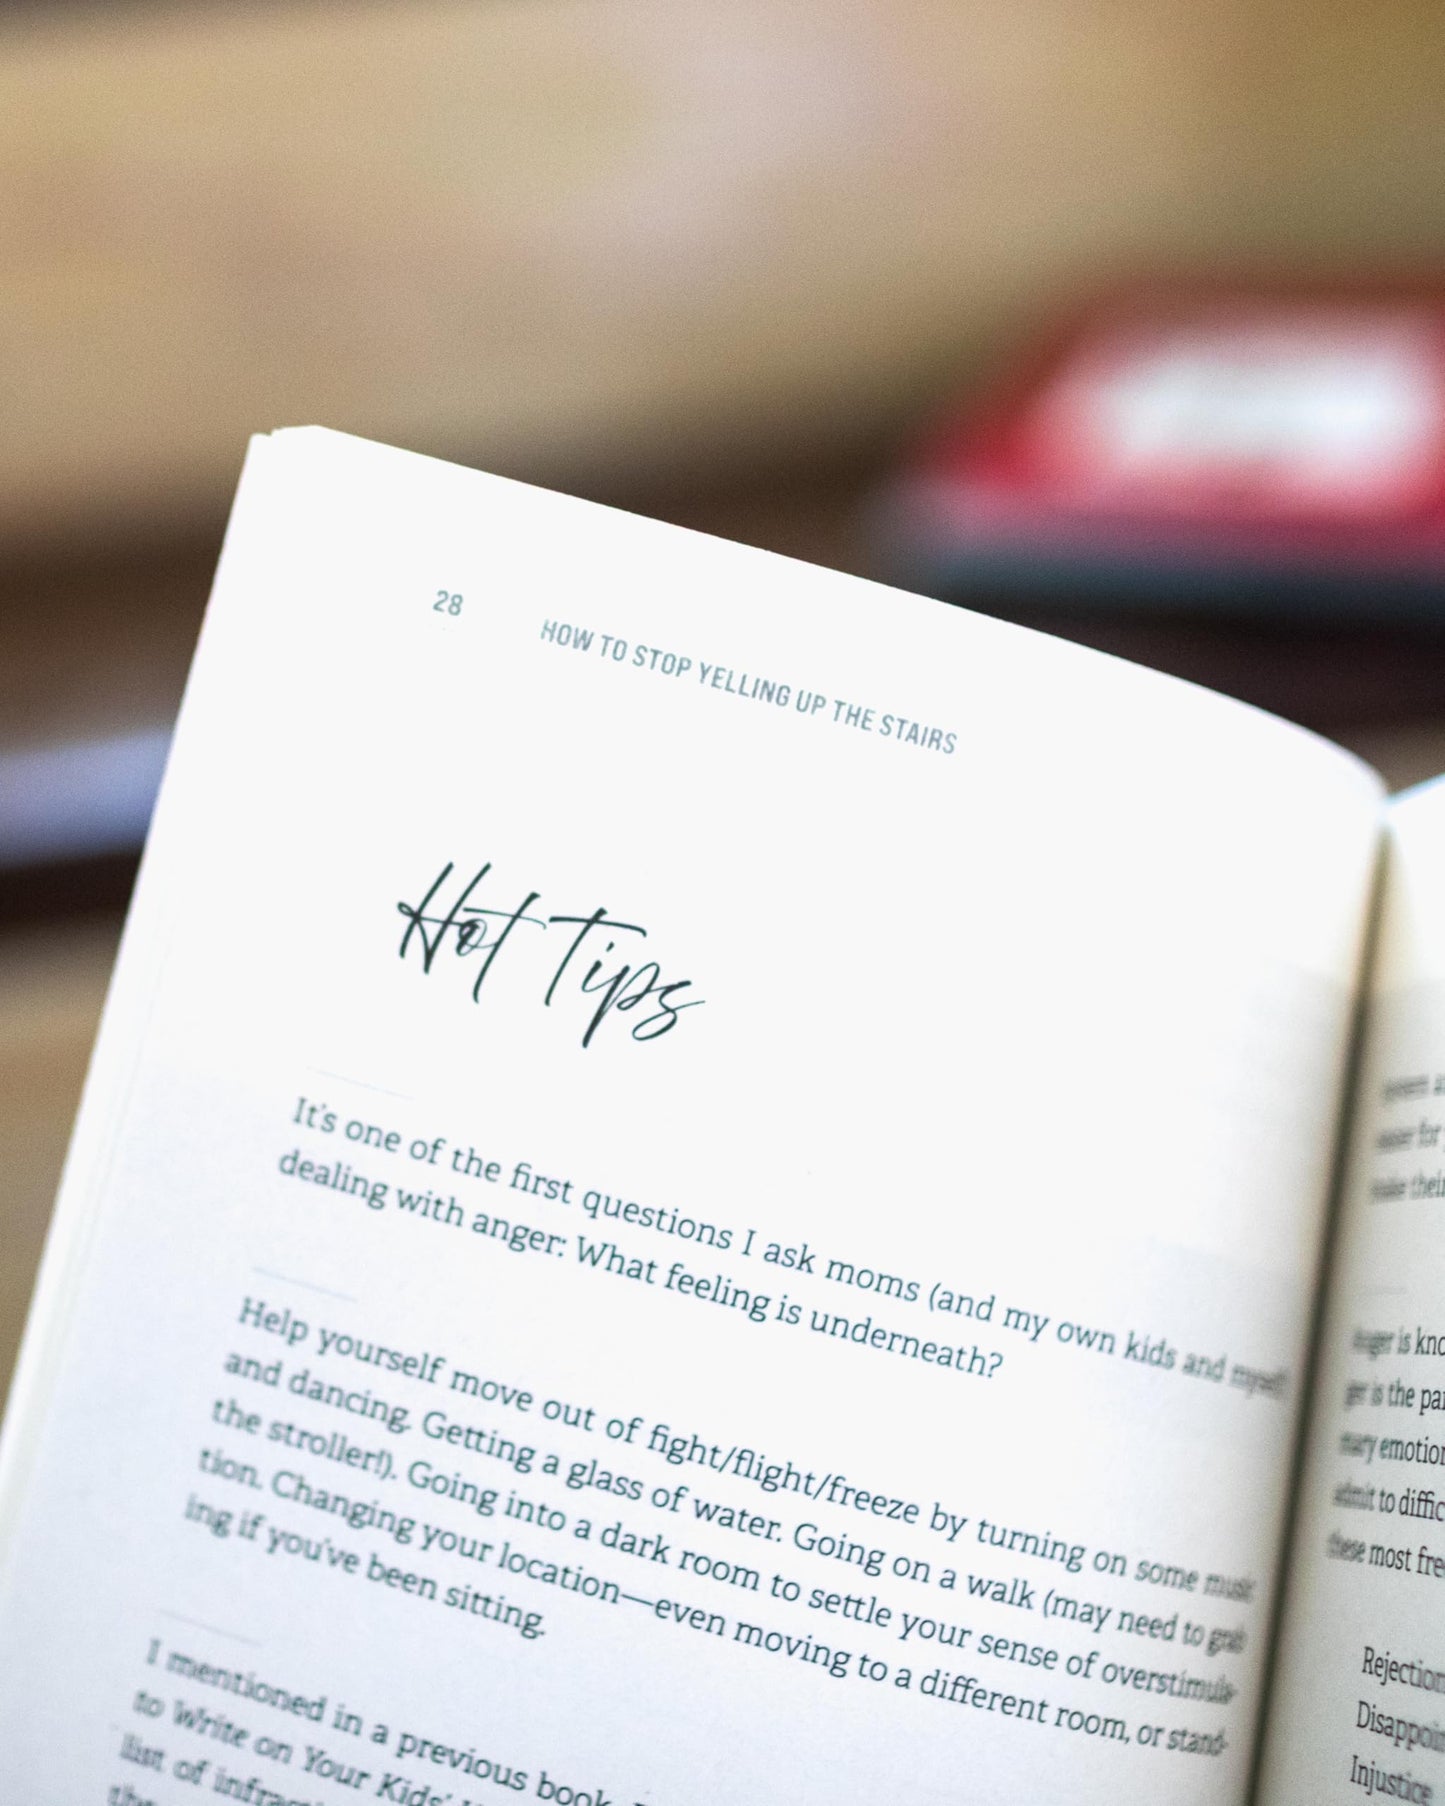 28
HOW TO STOP YELLING UP THE STAIRS
Hot Tips
It's one of the first questions I ask moms (and my own kids and myself)
dealing with anger: What feeling is underneath?
Help yourself move out of fight/flight/freeze by turning on some music
and dancing. Getting a glass of water. Going on a walk (may need to grab
the stroller!). Going into a dark room to settle your sense of overstimula-
tion. Changing your location—even moving to a different room, or stand-
ing if you've been sitting.
I mentioned in a previous book,
to Write on Your Kids'
list of
the
easier for
make their
Anger is
is the
emotion
admit to
these most
Rejection
Injustice